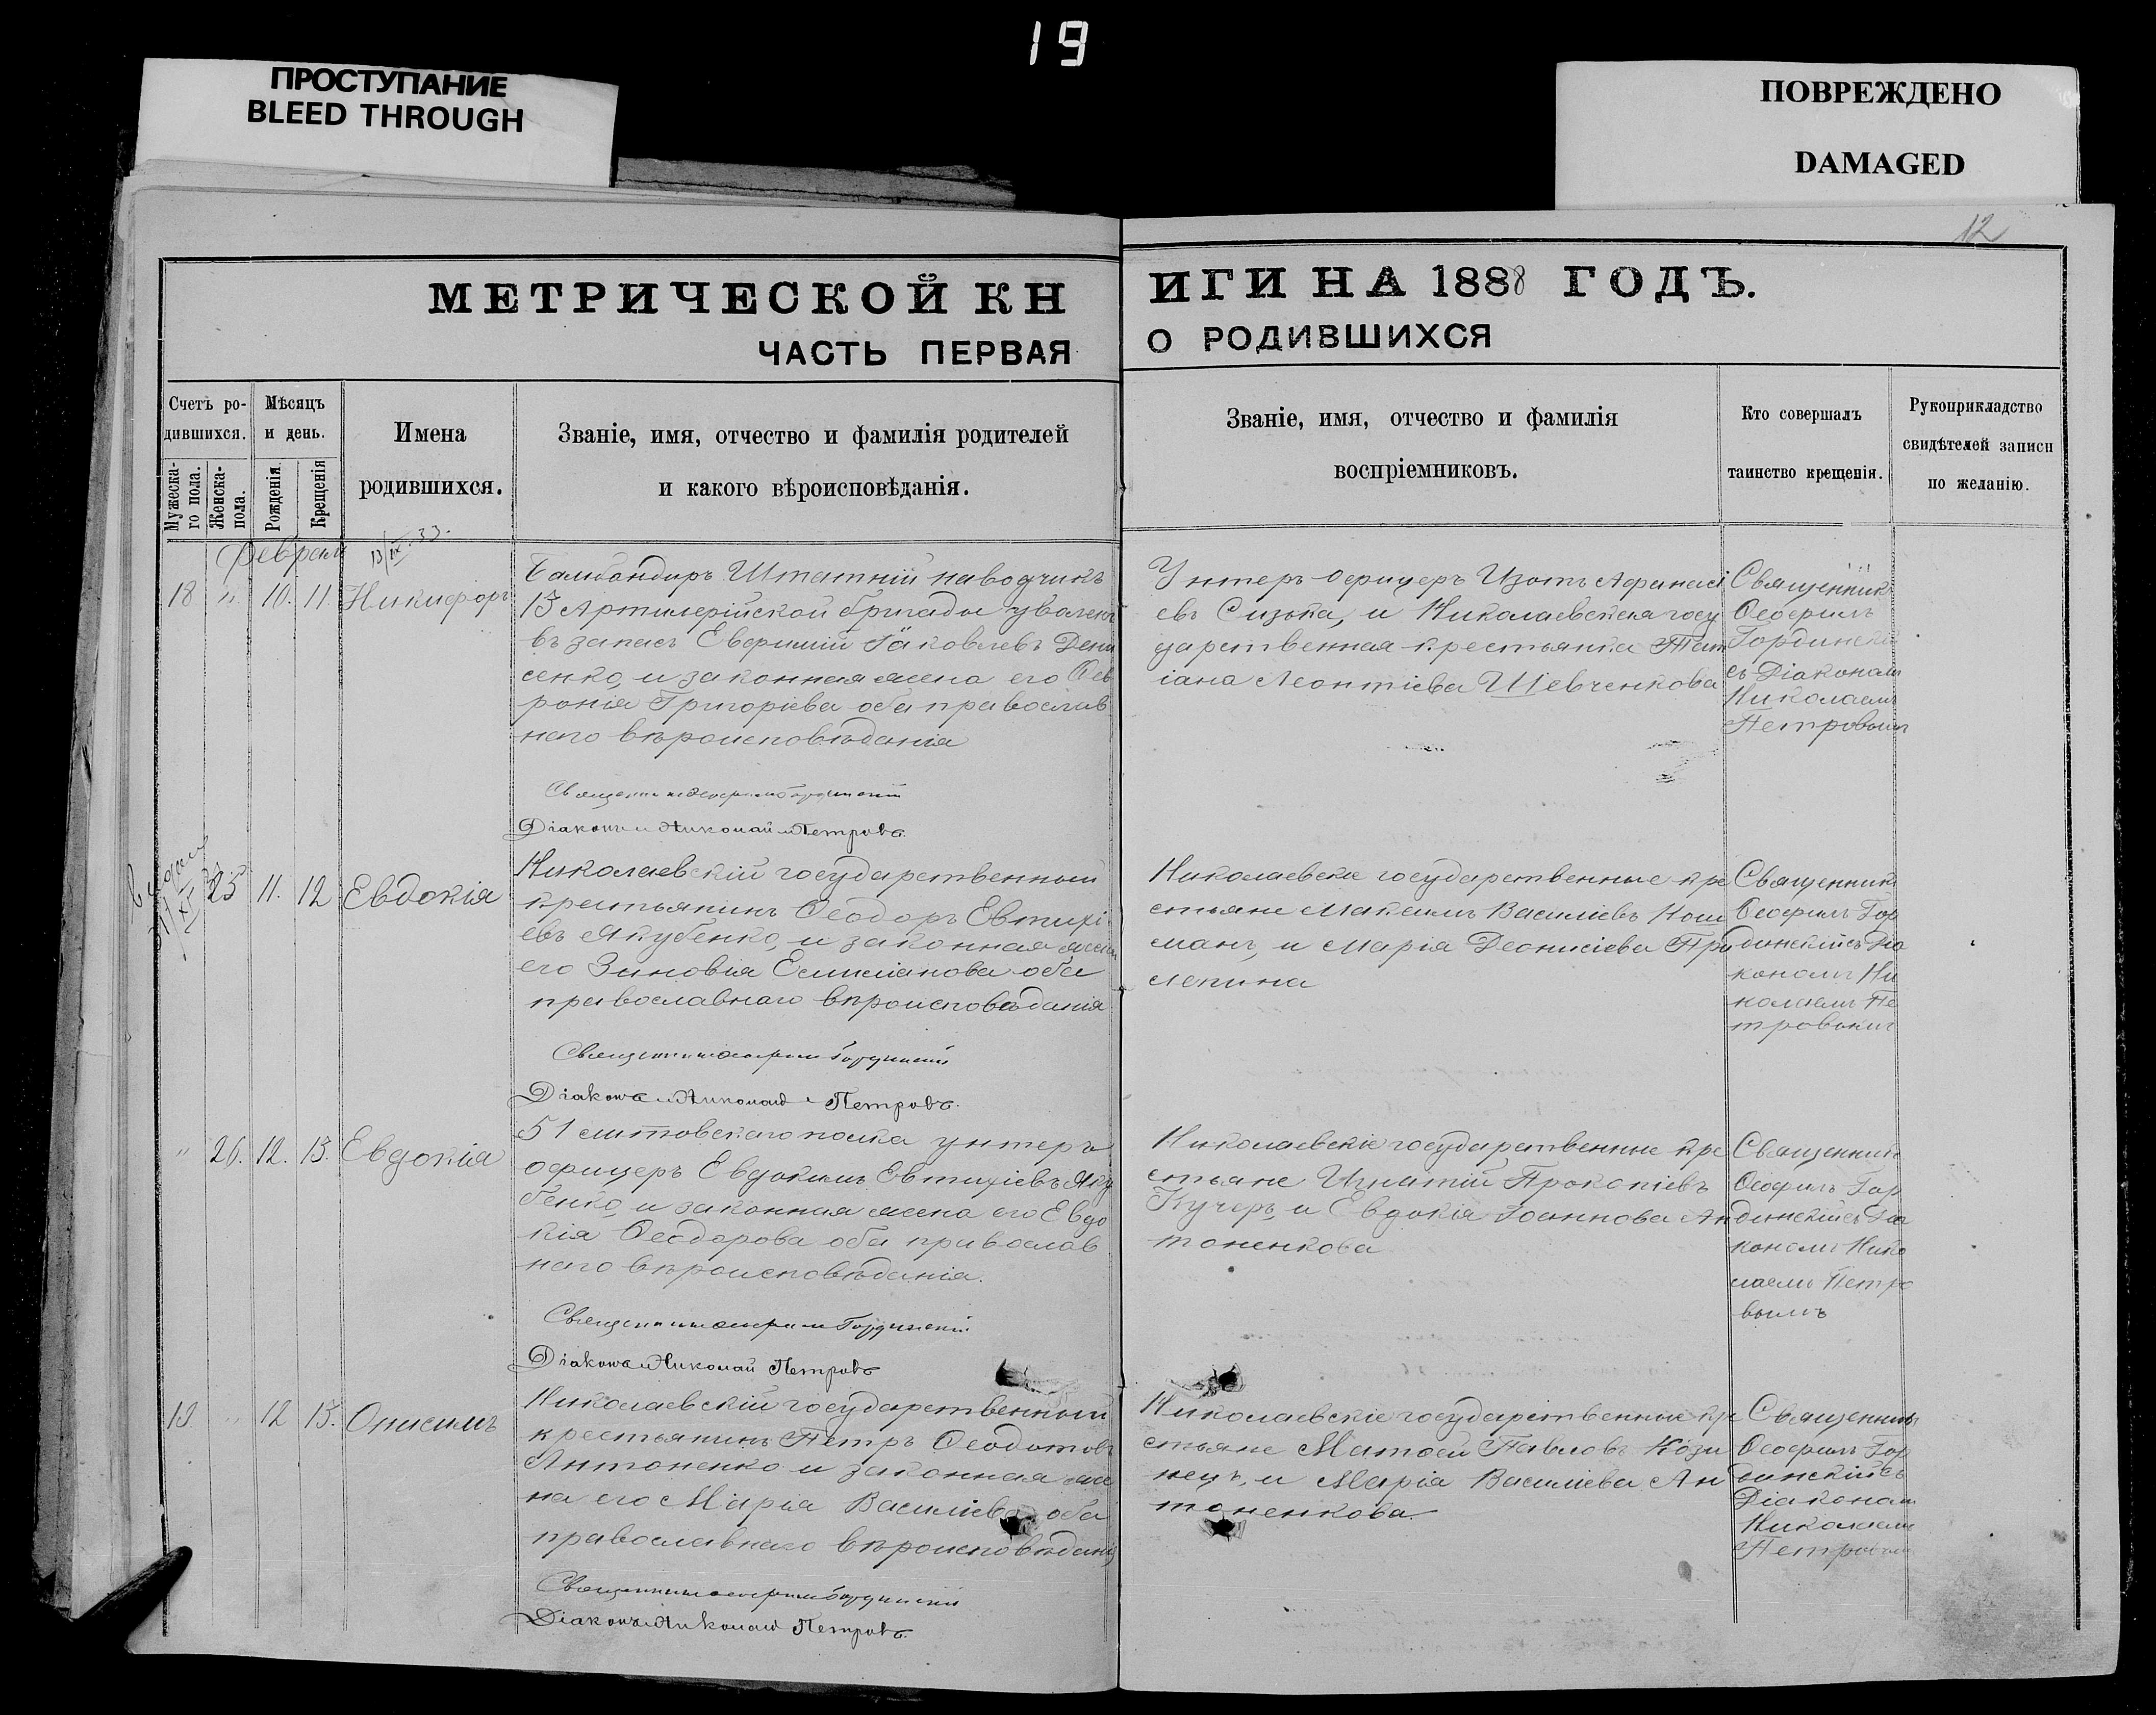 19
ПРОСТУПАНИЕ
BLEED THROUGH
ПОВРЕЖДЕНО
DAMAGED
12
МЕТРИЧЕСКОЙ КН
ИГИ НА 1888 ГОДЪ.
ЧАСТЬ ПЕРВАЯ
О РОДИВШИХСЯ
Счетъ ро-
дившихся.
Мужеска-
го пола.
Женска-
пола.
Мѣсяцъ
и день.
Рожденія.
Крещенія
Имена
родившихся.
Званіе, имя, отчество и фамилія родителей
и какого вѣроисповѣданія.
Званіе, имя, отчество и фамилія
воспріемниковъ.
Кто совершалъ
таинство крещенія.
Рукоприкладство
свидѣтелей записи
по желанію.
февраль
18 " 10. 11. Никифоръ
Бамбандиръ Штатній наводчикъ
13 Артилерійской бригады уволен
въ запасъ Евфимій Іаковлевъ Дени
сенко, и законная жена его Ѳев
ронія Григоріева оба православ
наго вѣроисповѣданія
Священникъ Ѳеофилъ Гординскій
Діаконъ Николай Петровъ.
Унтеръ-офицеръ Изотъ Афанасі
евъ Сизька, и Николаевская госу
дарственная крестьянка Тат
іана Леонтіева Шевченкова
Священник
Ѳеофилъ
Гординскі
съ Діаконом
Николаемъ
Петровым
25 11. 12 Евдокія
Николаевскій государственный
крестьянинъ Ѳеодоръ Евтихі
евъ Якубенко, и законная жена
его Зиновія Емиліанова оба
православнаго вѣроисповѣданія
Священникъ Ѳеофилъ Гординскій
Діаконъ Николай Петровъ.
Николаевскіе государственные кре
стьяне Максимъ Василіевъ Кош
манъ, и Марія Деонисіева При
лепина
Священник
Ѳеофилъ Гор
динскій съ Діа
кономъ Ни
колаемъ Пе
тровымъ
" 26. 12. 13. Евдокія
51 литовскаго полка унтеръ
офицеръ Евдокимъ Евтихіевъ Яку
бенко, и законная жена его Евдо
кія Ѳеодорова оба православ
наго вѣроисповѣданія.
Священникъ Ѳеофилъ Гординскій
Діаконъ Николай Петровъ
Николаевскіе государственные кре
стьяне Игнатій Прокопіевъ
Кучеръ, и Евдокія Іоаннова Ан
тоненкова
Священник
Ѳеофилъ Гор
динскій съ Діа
кономъ Нико
лаемъ Петро
вымъ
19. " 12 13. Онисимъ
Николаевскій государственный
крестьянинъ Петръ Ѳеодотовъ
Антоненко и законная же
на его Марія Василіева оба
православнаго вѣроисповѣданія
Священникъ Ѳеофилъ Гординскій
Діаконъ Николай Петровъ.
Николаевскіе государственные кре
стьяне Матѳей Павловъ Кози
нецъ, и Марія Василіева Ан
тоненкова.
Священникъ
Ѳеофилъ Гор
динскій съ
Діаконом
Николаем
Петровым